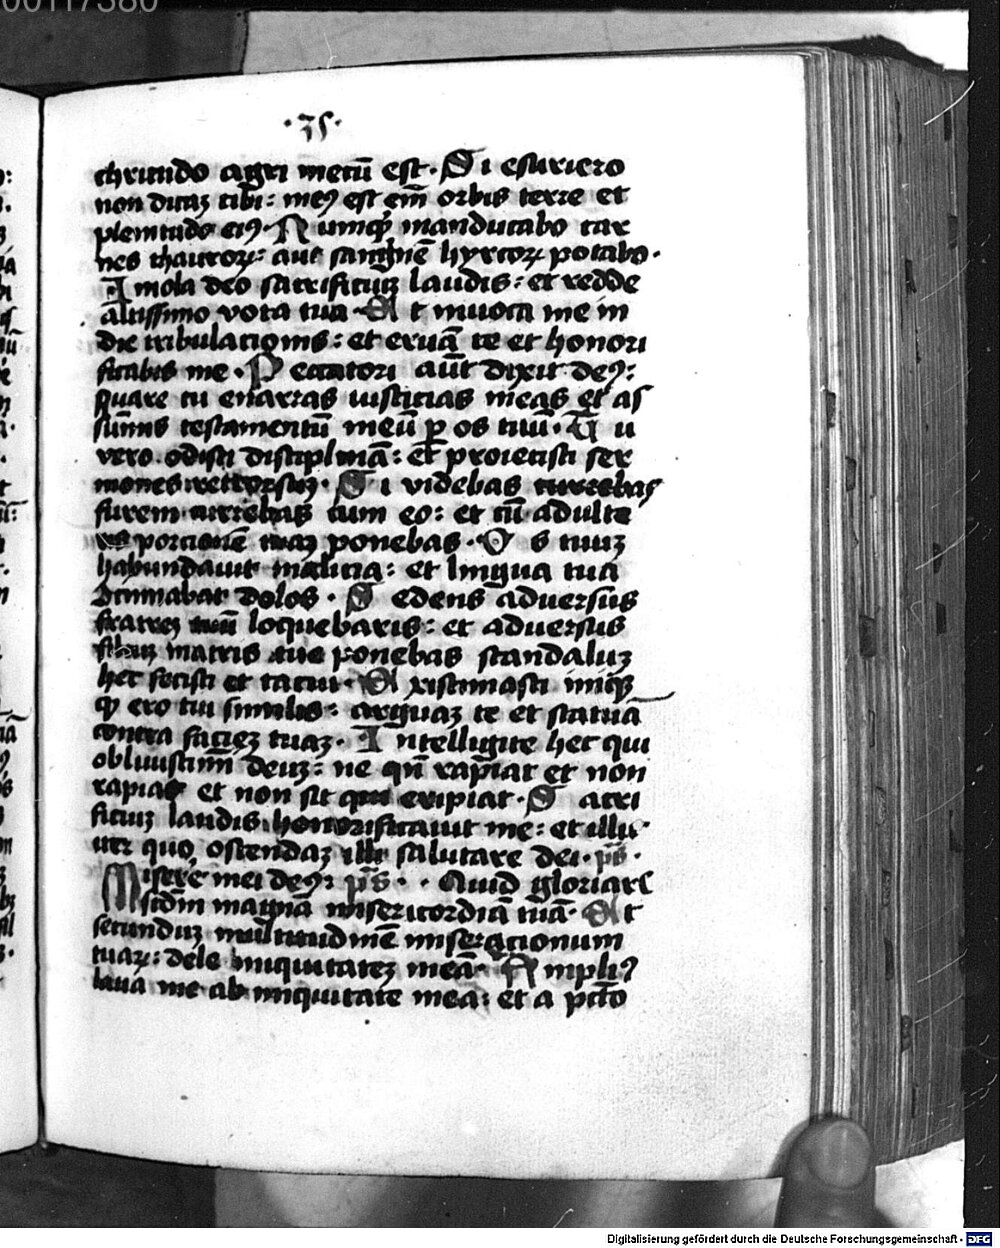 00117380
·35·
chritudo agri mecū est · Si esuriero
non dicaꝫ tibi : meꝰ est em̄ orbis terre et
plenitudo eiꝰ · Numqͥd manducabo car
nes thauroꝝ : aut sanguinē hyrcoꝝ potabo ·
Imola deo sacrificiuꝫ laudis : et redde
altissimo vota tua · Et inuoca me in
die tribulationis : et eruā te et honori
ficabis me · Peccatori aūt dixit deꝰ :
quare tu enarras iusticias meas et as
sumis testamentū meū ꝑ os tuū · Tu
vero odisti disciplinā : et proiecisti ser
mones retrorsuꝫ · Si videbas currebas
furem currebas cum eo : et cū adulte
ris portionē tuaꝫ ponebas · Os tuuꝫ
habundauit malicia : et lingua tua
concinnabat dolos · Sedens aduersus
fratreꝫ tuū loquebaris : et aduersus
filiuꝫ matris tue ponebas scandaluꝫ
hec fecisti et tacui · Existimasti iniqͥ
ꝙ ero tui similis : arguaꝫ te et statuā
contra facieꝫ tuaꝫ · Intelligite hec qui
obliuiscimī deuꝫ : ne qn̄ rapiat et non
rapiat et non sit qui eripiat · Sacri
ficiuꝫ laudis honorificauit me : et illic
iter quo ostendaꝫ illi salutare dei · pͣs ·
Misere mei deꝰ : pͣs · · Quid gloriaris
scdm magnā misericordiā tuā · Et
secunduꝫ multitudinē miserationum
tuaꝝ : dele iniquitateꝫ meā · Ampliꝰ
laua me ab iniquitate mea : et a pctō
Digitalisierung gefördert durch die Deutsche Forschungsgemeinschaft - DFG